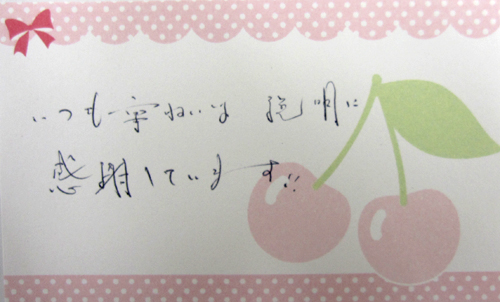 いつも丁寧な説明に
感謝しています!!